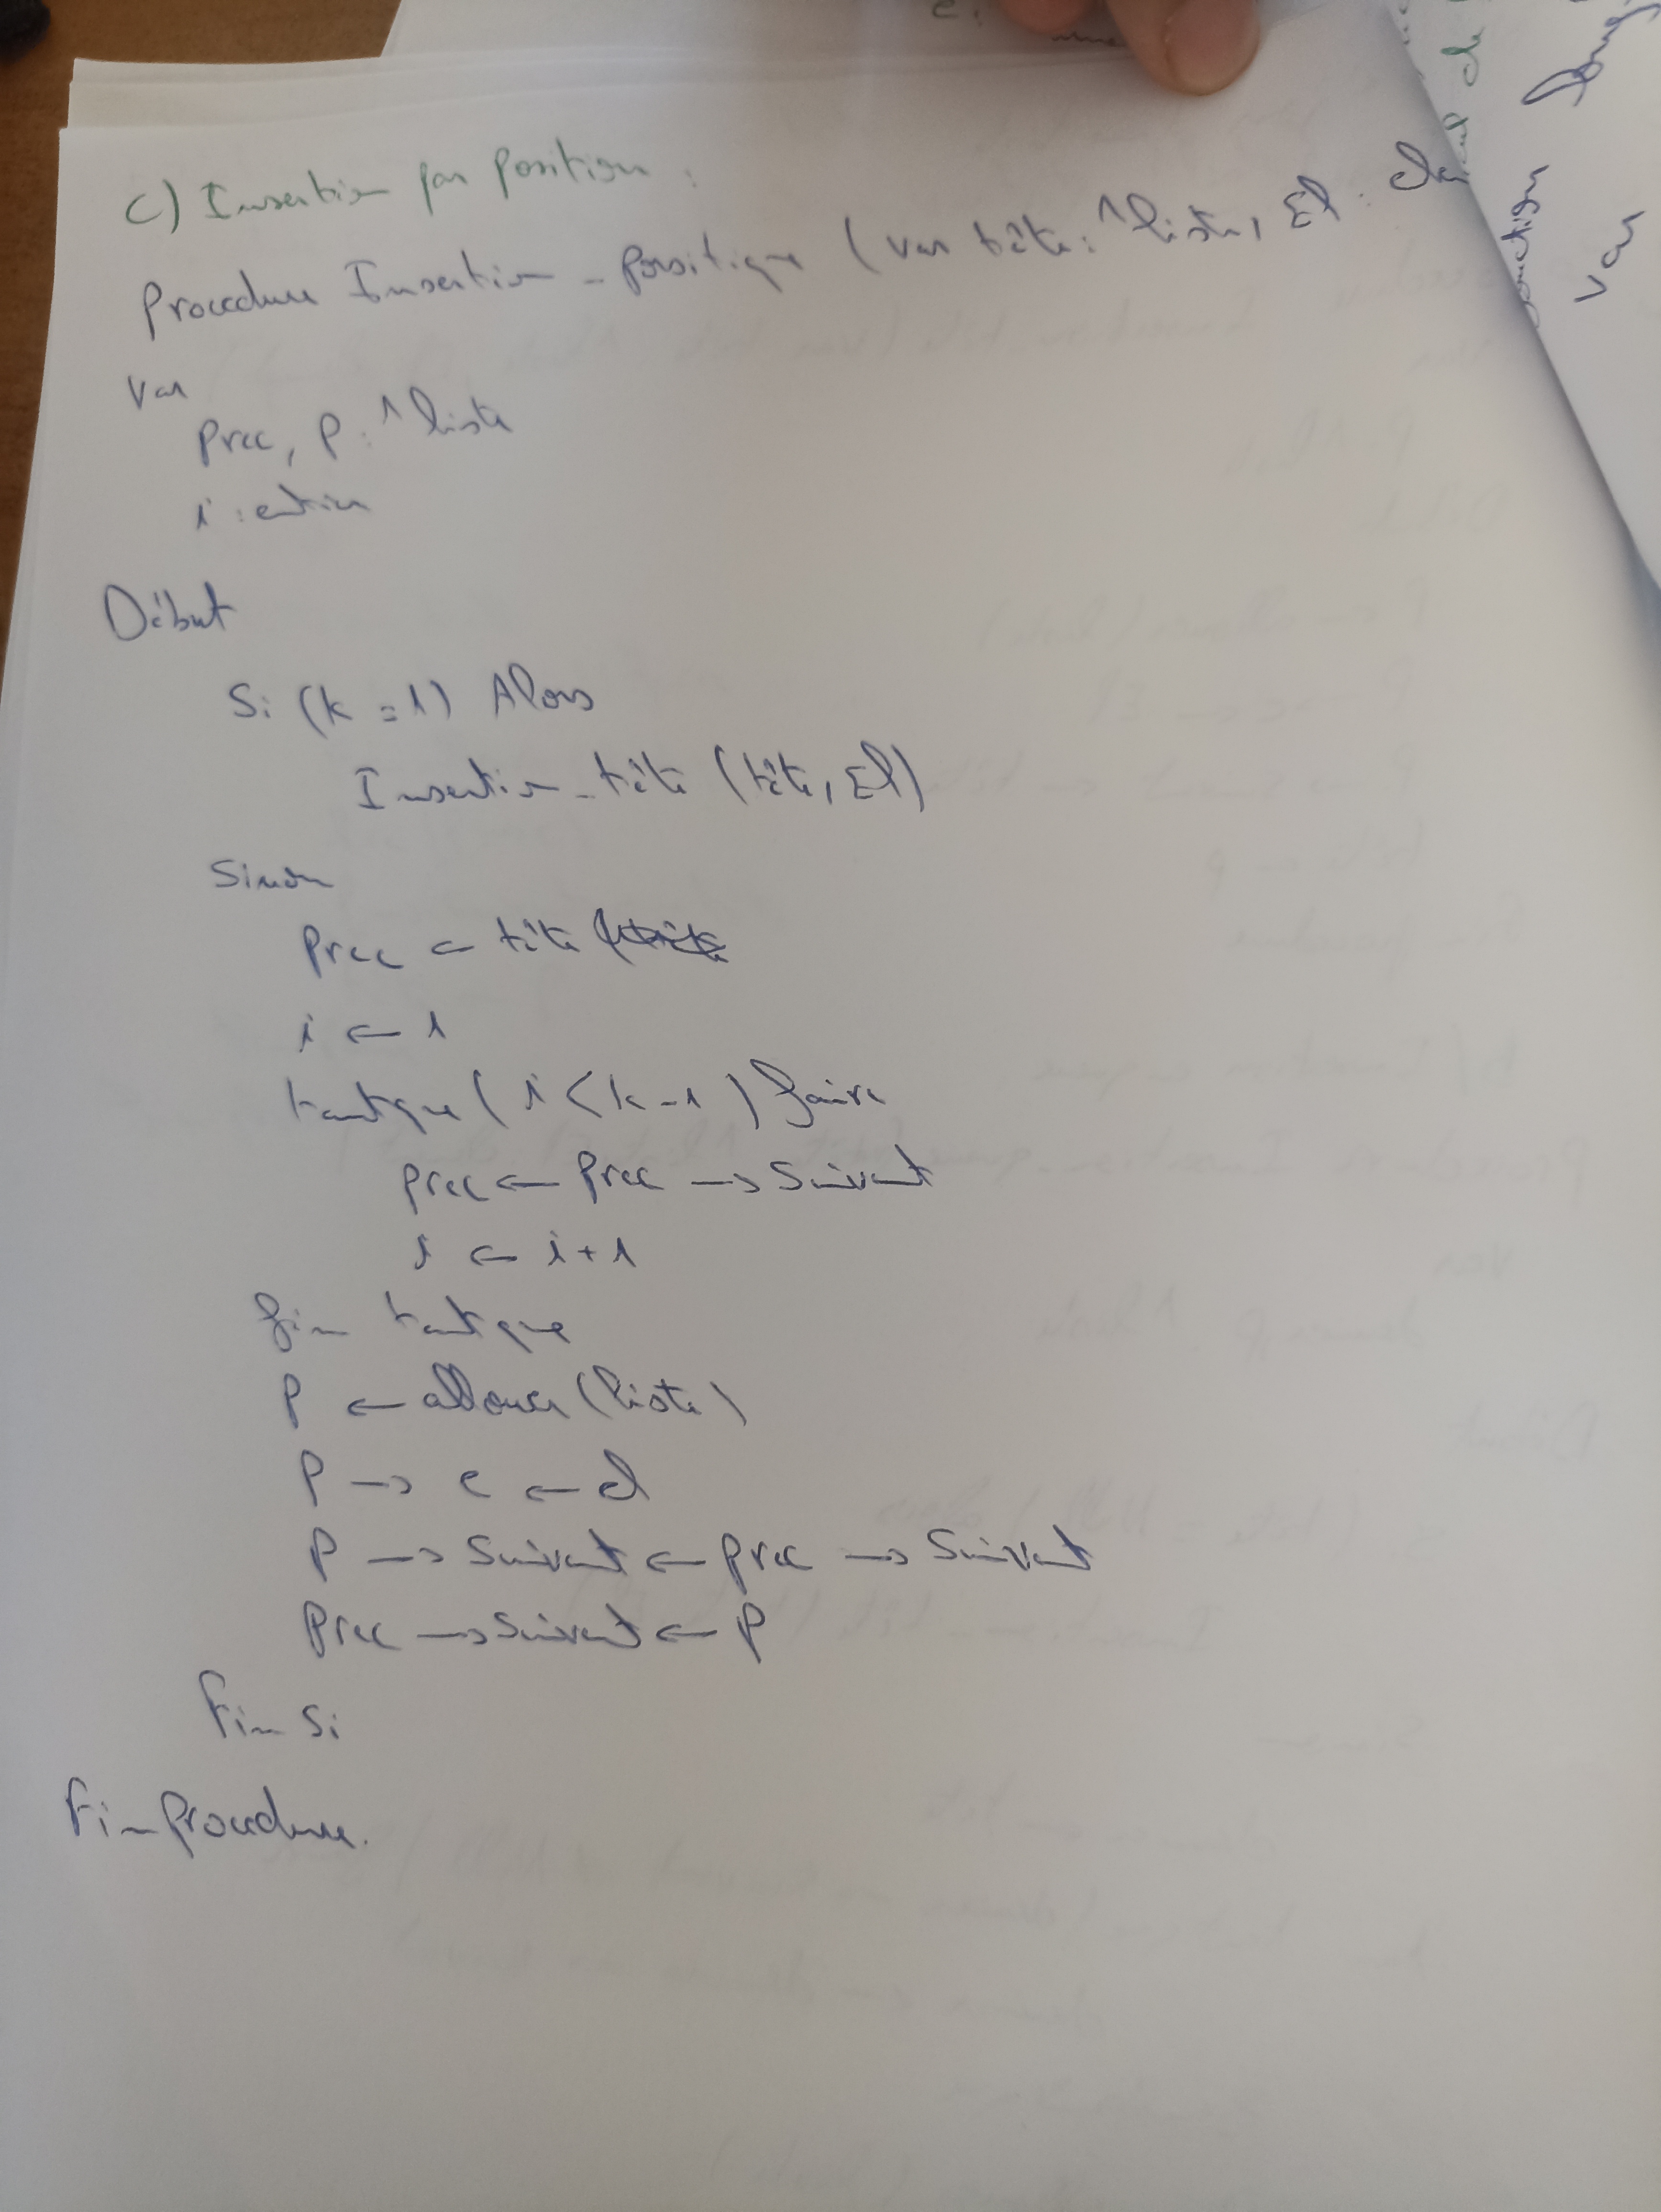 C) Insertion par position :
Procedure Insertion - position (var tête : ^liste, El :
Var
Prec, P : ^liste
i : entier
Début
Si (k = 1) Alors
Insertion - tête (tête, El)
Sinon
Prec ← tête
i ← 1
tantque ( i < k - 1 ) faire
prec ← prec → Suivant
i ← i + 1
fin tantque
P ← allouer (liste)
P → e ← el
P → Suivant ← prec → Suivant
Prec → Suivant ← P
Fin Si
Fin procedure.
Var